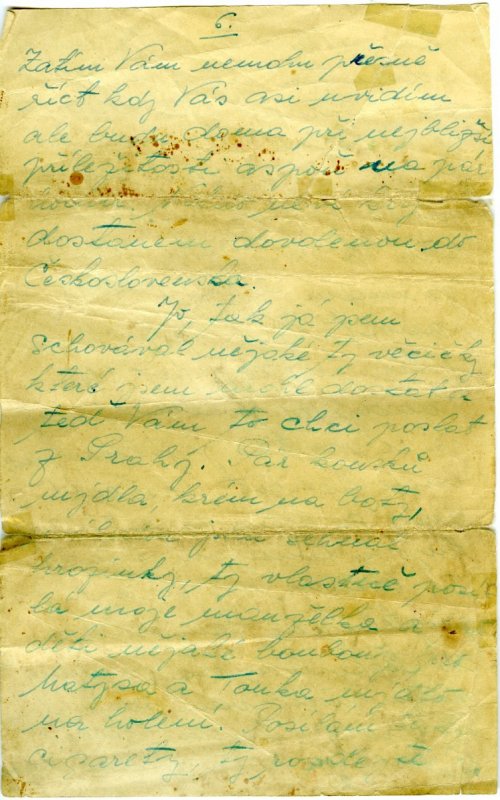 6.
Zatím Vám nemohu přesně
říct kdy Vás asi uvidím
ale budu doma při nejbližší
příležitosti aspoň na pár
dostanem dovolenou do
Československa.
Jo, tak já jsem
schovával nějaké ty věcičky
které jsem dostat a
teď Vám to chci poslat
z Prahy. Pár kousků
mýdla, krém na boty,
jsem sehnal
hrozinky, ty vlastně posí
la moje manželka a
děti nějaké bonbony, pro
Matysa a Tonka mýdlo
na holení. Posílám
cigarety, ty rozdělte